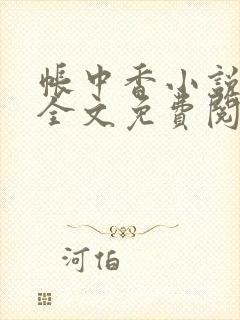 帳中香小說
全文免費閱
河伯